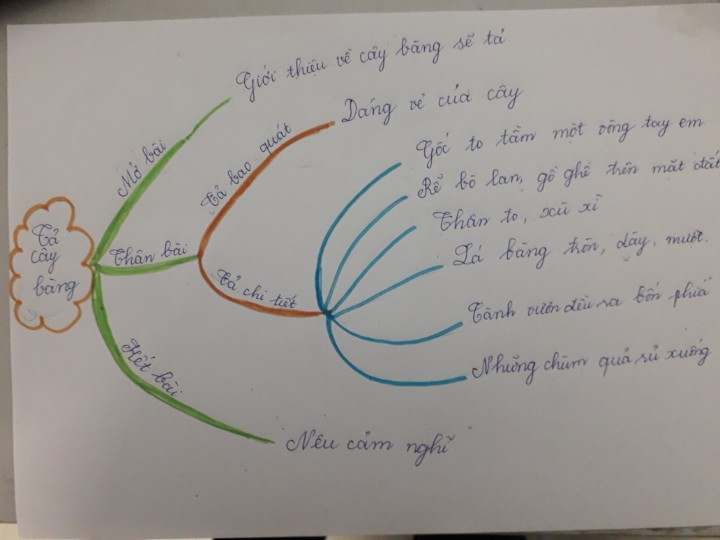 Tả
cây
bàng
Mở bài
Giới thiệu về cây bàng sẽ tả
Thân bài
Tả bao quát
Dáng vẻ của cây
Tả chi tiết
Gốc to tầm một vòng tay em
Rễ bò lan, gồ ghề trên mặt đất
Thân to, xù xì
Lá bàng tròn, dày, mướt.
Cành vươn đều ra bốn phía
Những chùm quả rủ xuống
Kết bài
Nêu cảm nghĩ